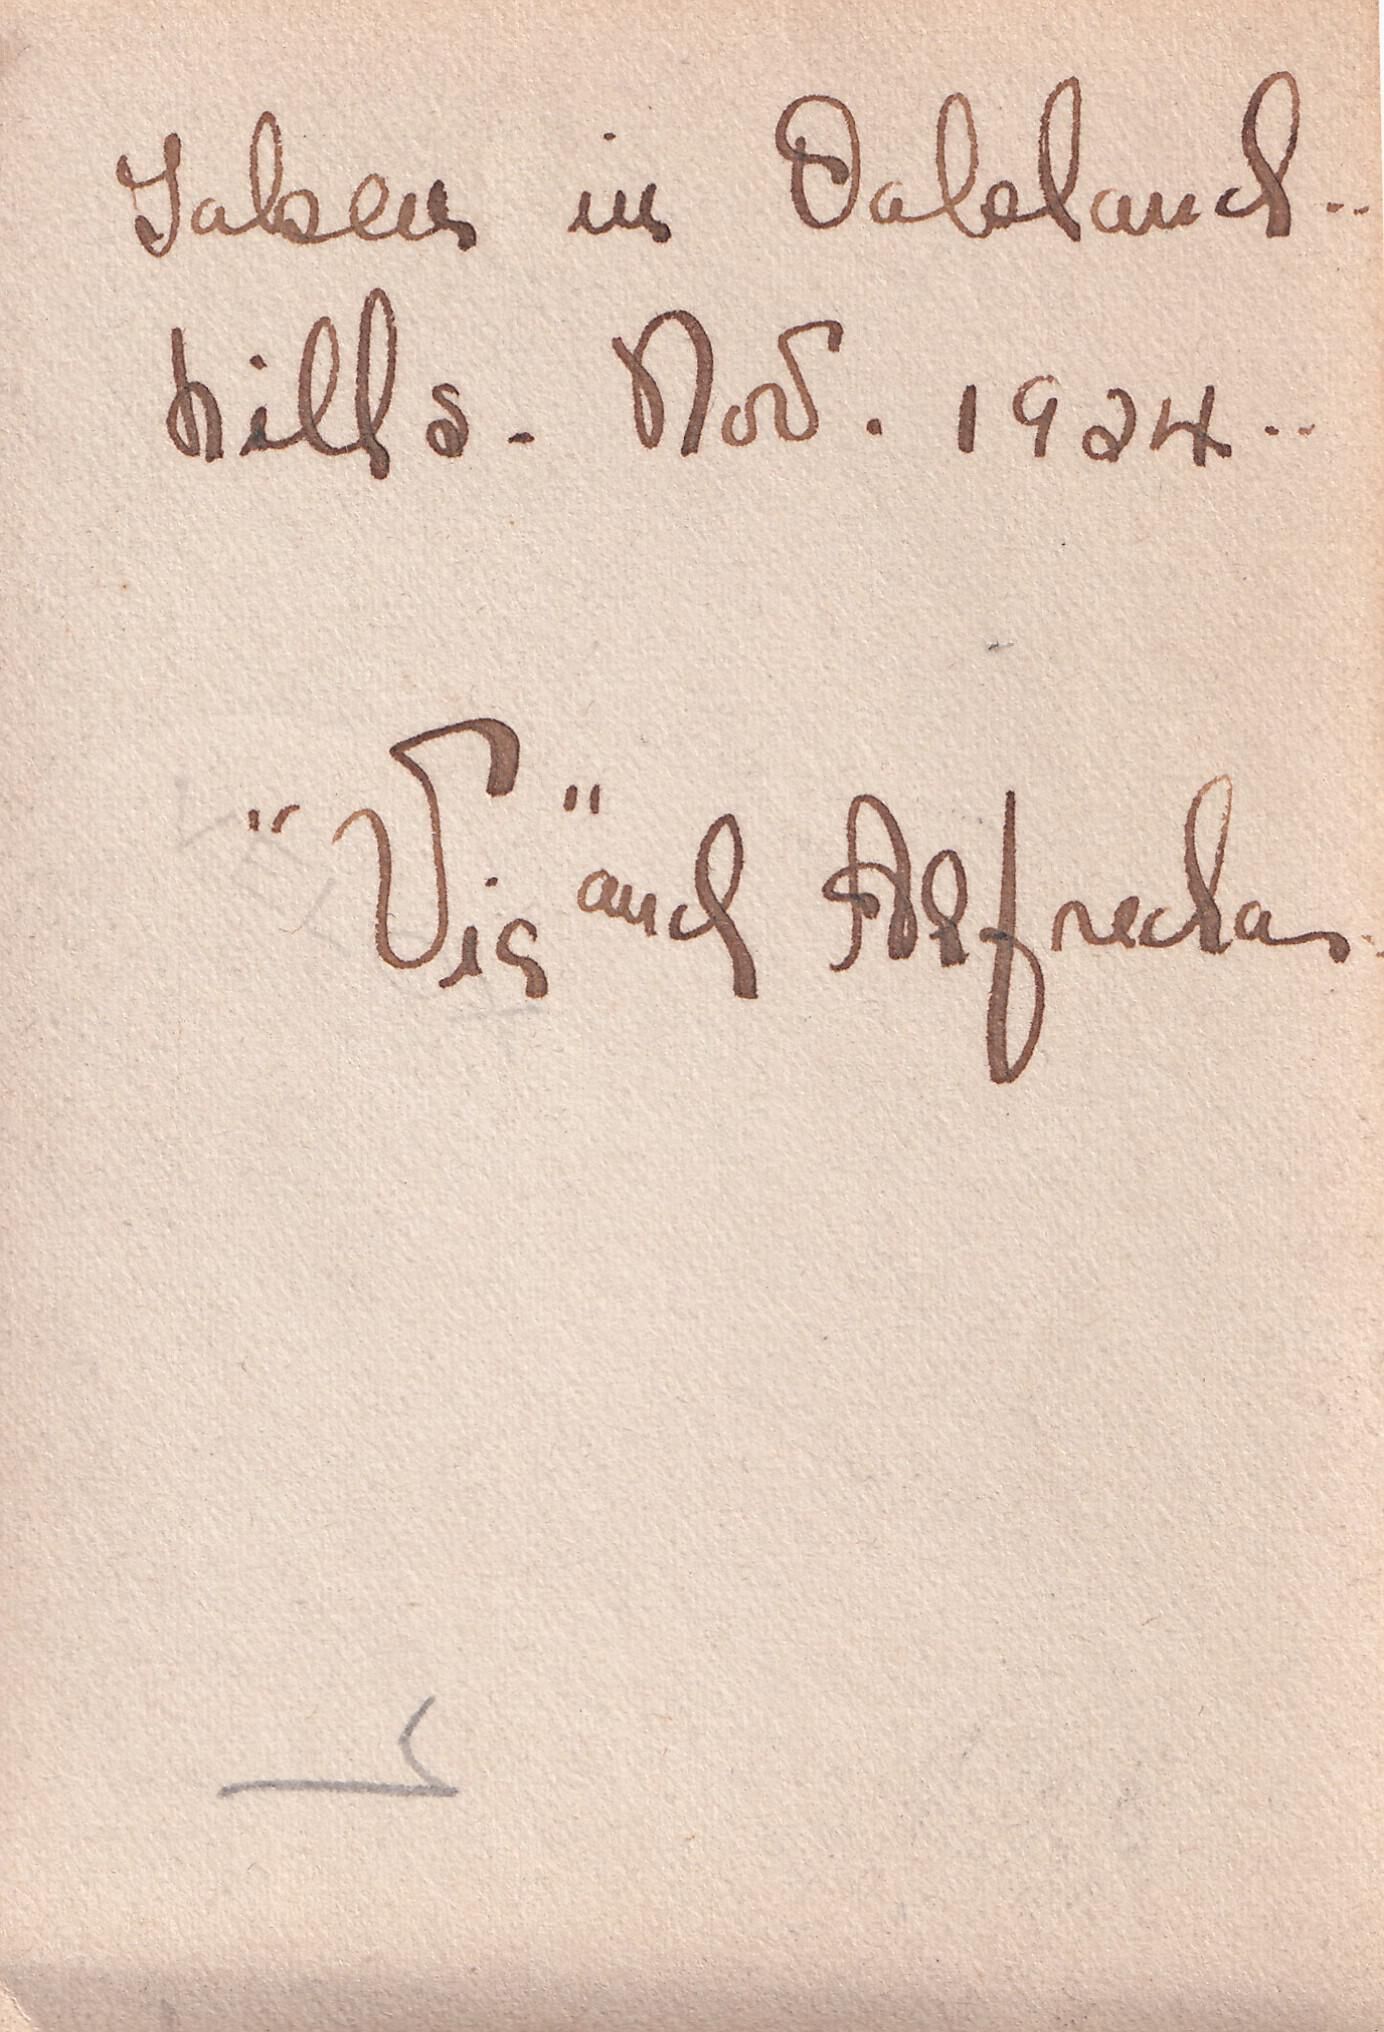 Taken in Oakland..
hills. Nov. 1924..
"Vic" and Alfreda.